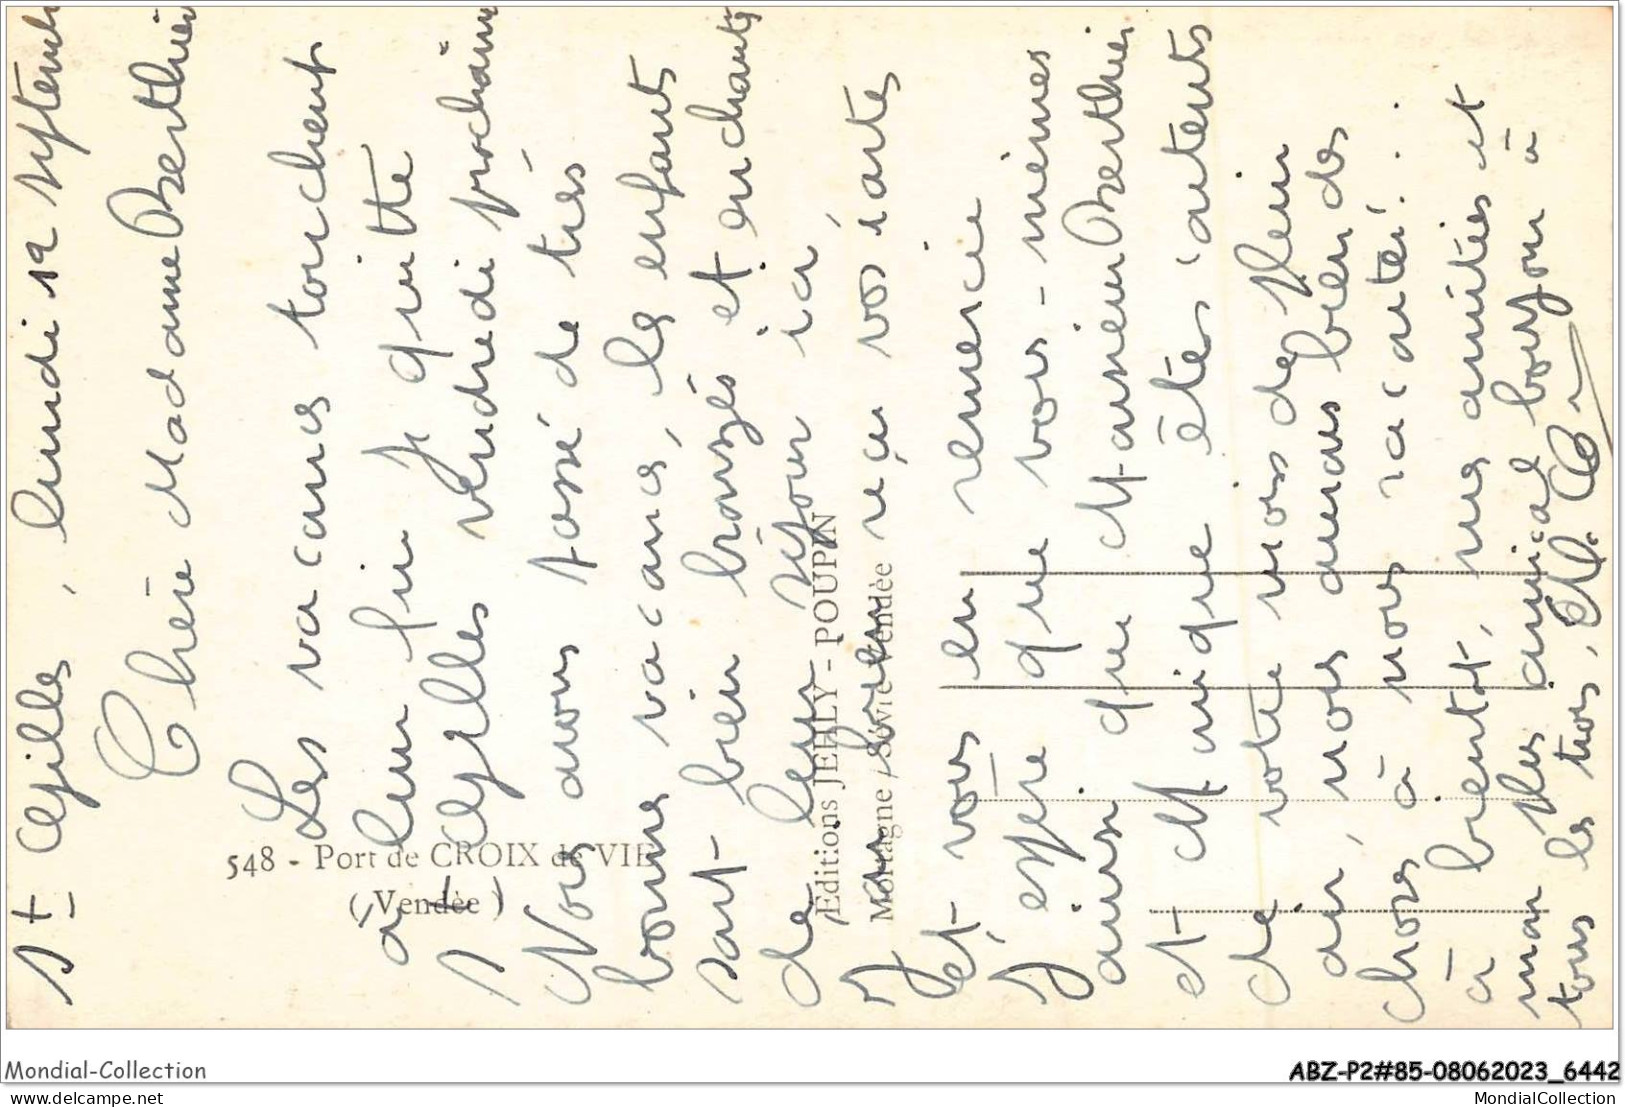 St Gilles, lundi 12 septemb
Chère Madame Berthier
Les vacances touchent
à leur fin je quitte
St Gilles vendredi prochain
Nous avons passé de très
bonnes vacances, les enfants
sont bien bronzés et enchantés
de leur séjour ici,
J'ai bien reçu vos cartes
et vous en remercie
J'espère que vous-mêmes
ainsi que Monsieur Berthier
et Monique êtes contents
de votre mois de plein
air, nous aurons bien des
choses à nous raconter...
à bientôt, mes amitiés et
mon plus amical bonjour à
tous les trois,
548 - Port de CROIX de VIE
(Vendèe)
Editions JEHLY - POUPIN
Mortagne s/Sèvre Vendèe
Mondial-Collection
ABZ-P2#85-08062023_6442
mondial-collection.com
MondialCollection